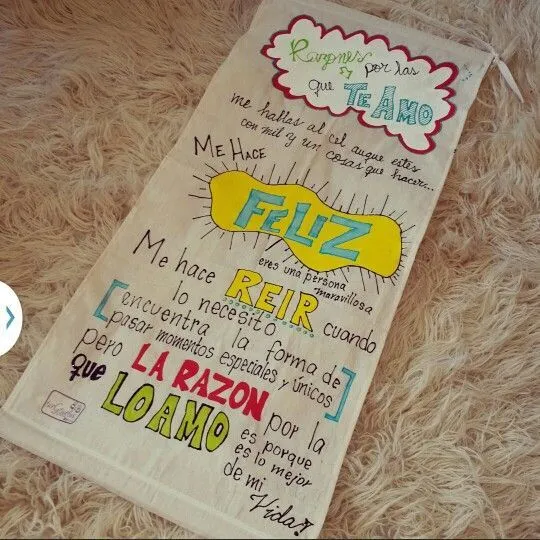 Razones
por las
que TE AMO
me hablas al cel auque estes
con mil y un cosas que hacer...
ME HACE
FELIZ
eres una persona
maravillosa
Me hace REIR cuando
lo necesito
[encuentra la forma de
pasar momentos especiales y únicos]
pero LA RAZON por la
que LO AMO es porque
es lo mejor
de mi
Vida!